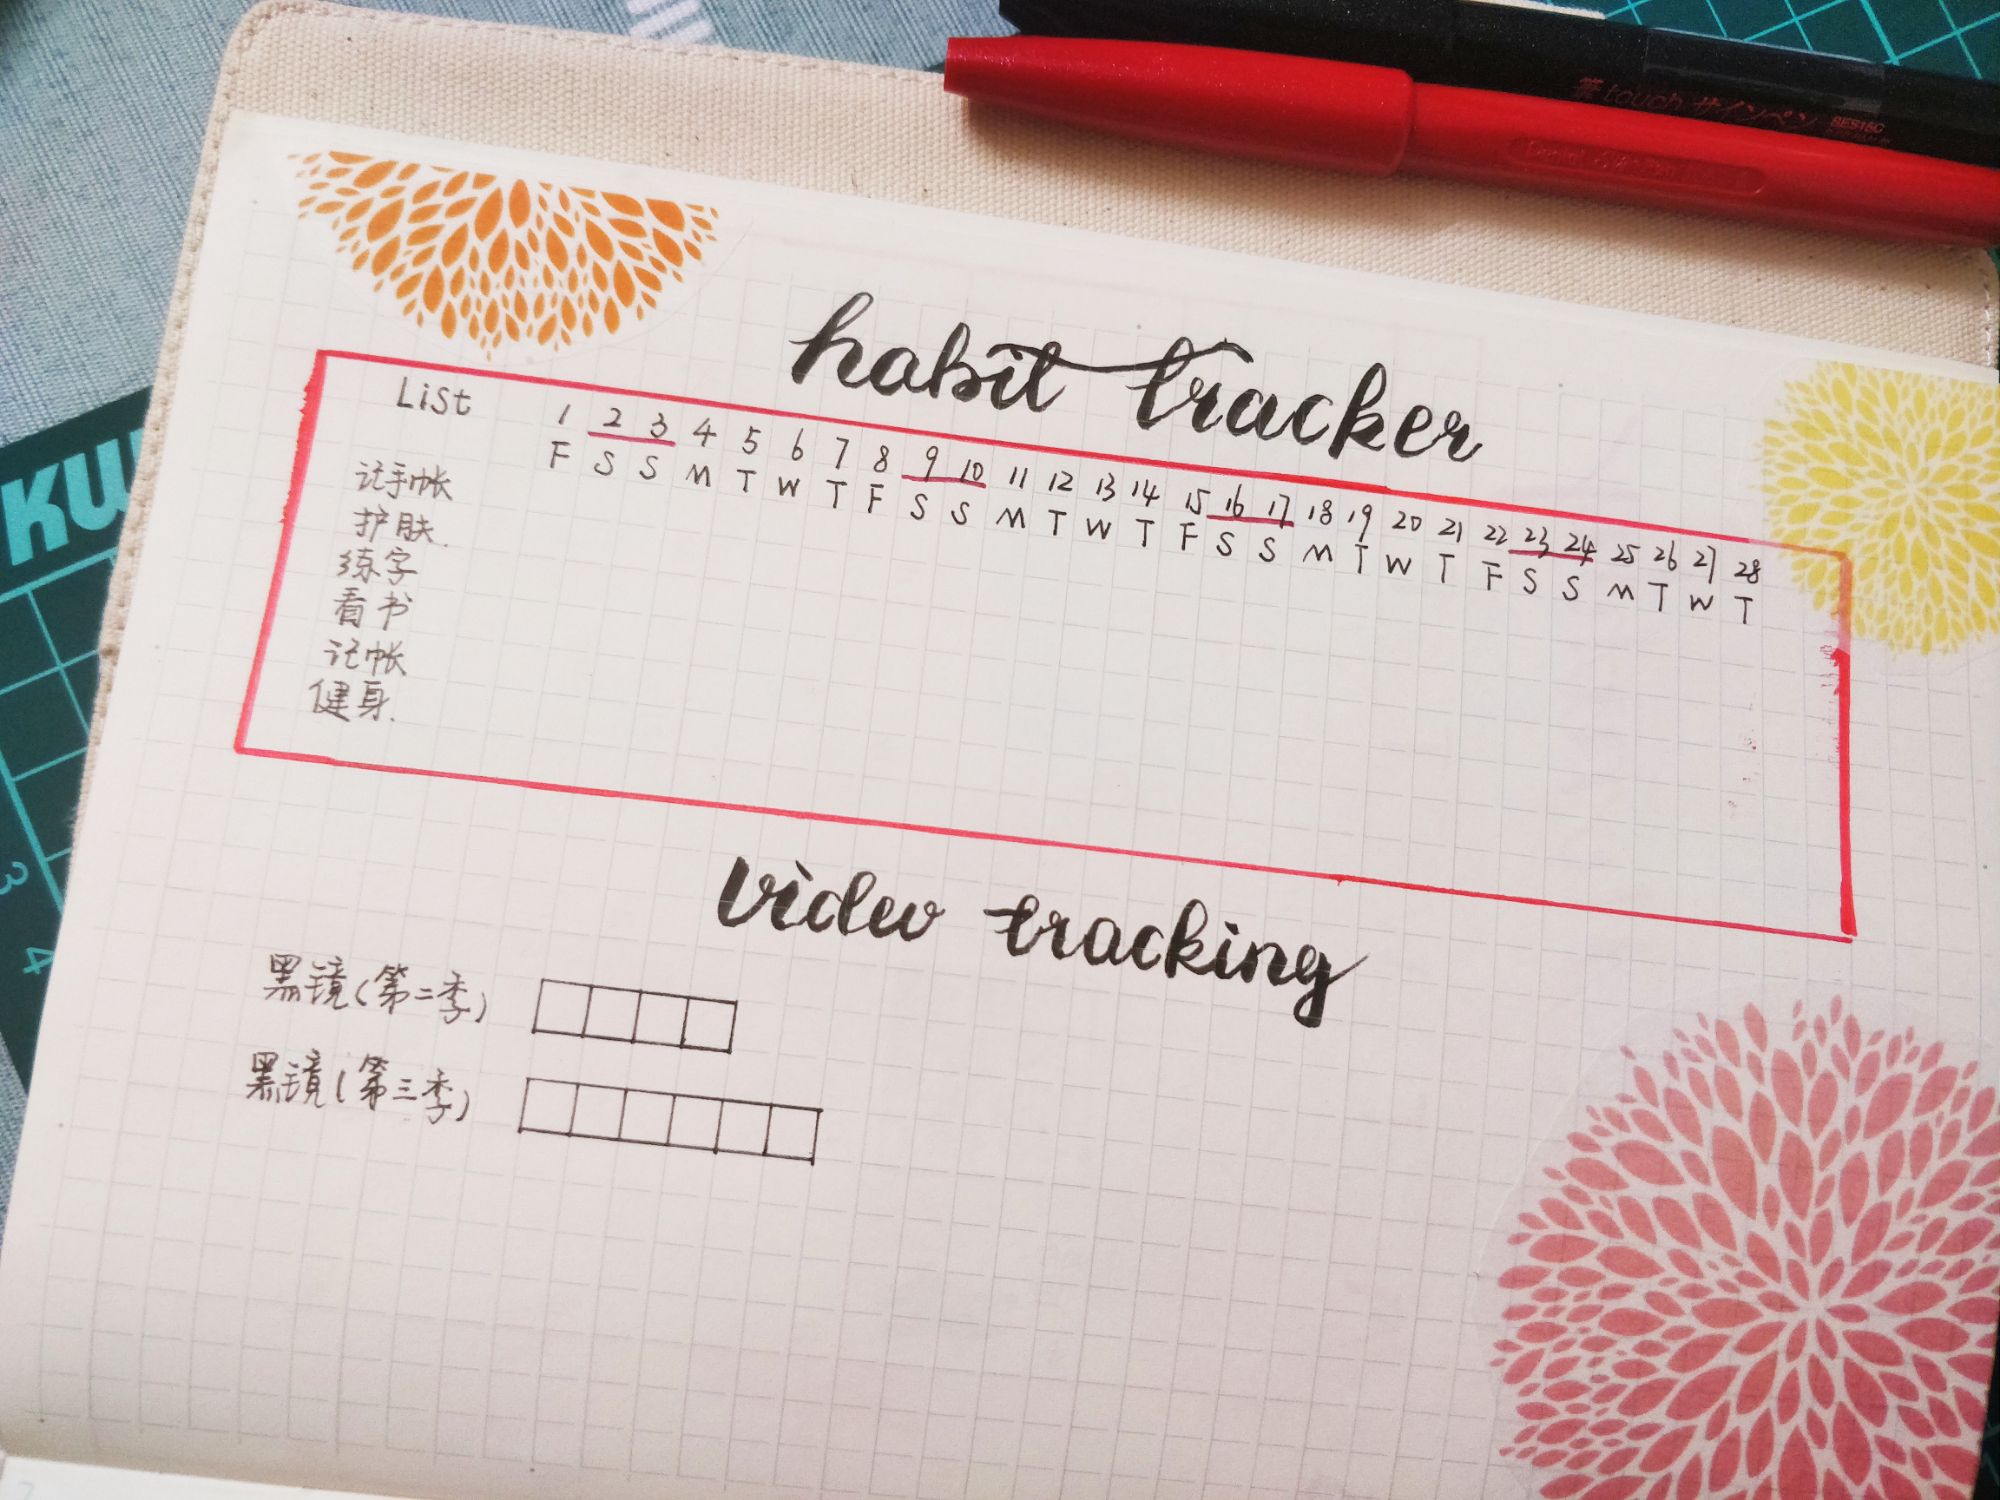 筆touch サインペン SES15C
habit tracker
List 1 2 3 4 5 6 7 8 9 10 11 12 13 14 15 16 17 18 19 20 21 22 23 24 25 26 27 28
F S S M T W T F S S M T W T F S S M T W T F S S M T W T
记手帐
护肤.
练字
看书
记帐
健身.
KU
video tracking
黑镜(第二季)
黑镜(第三季)
3
4